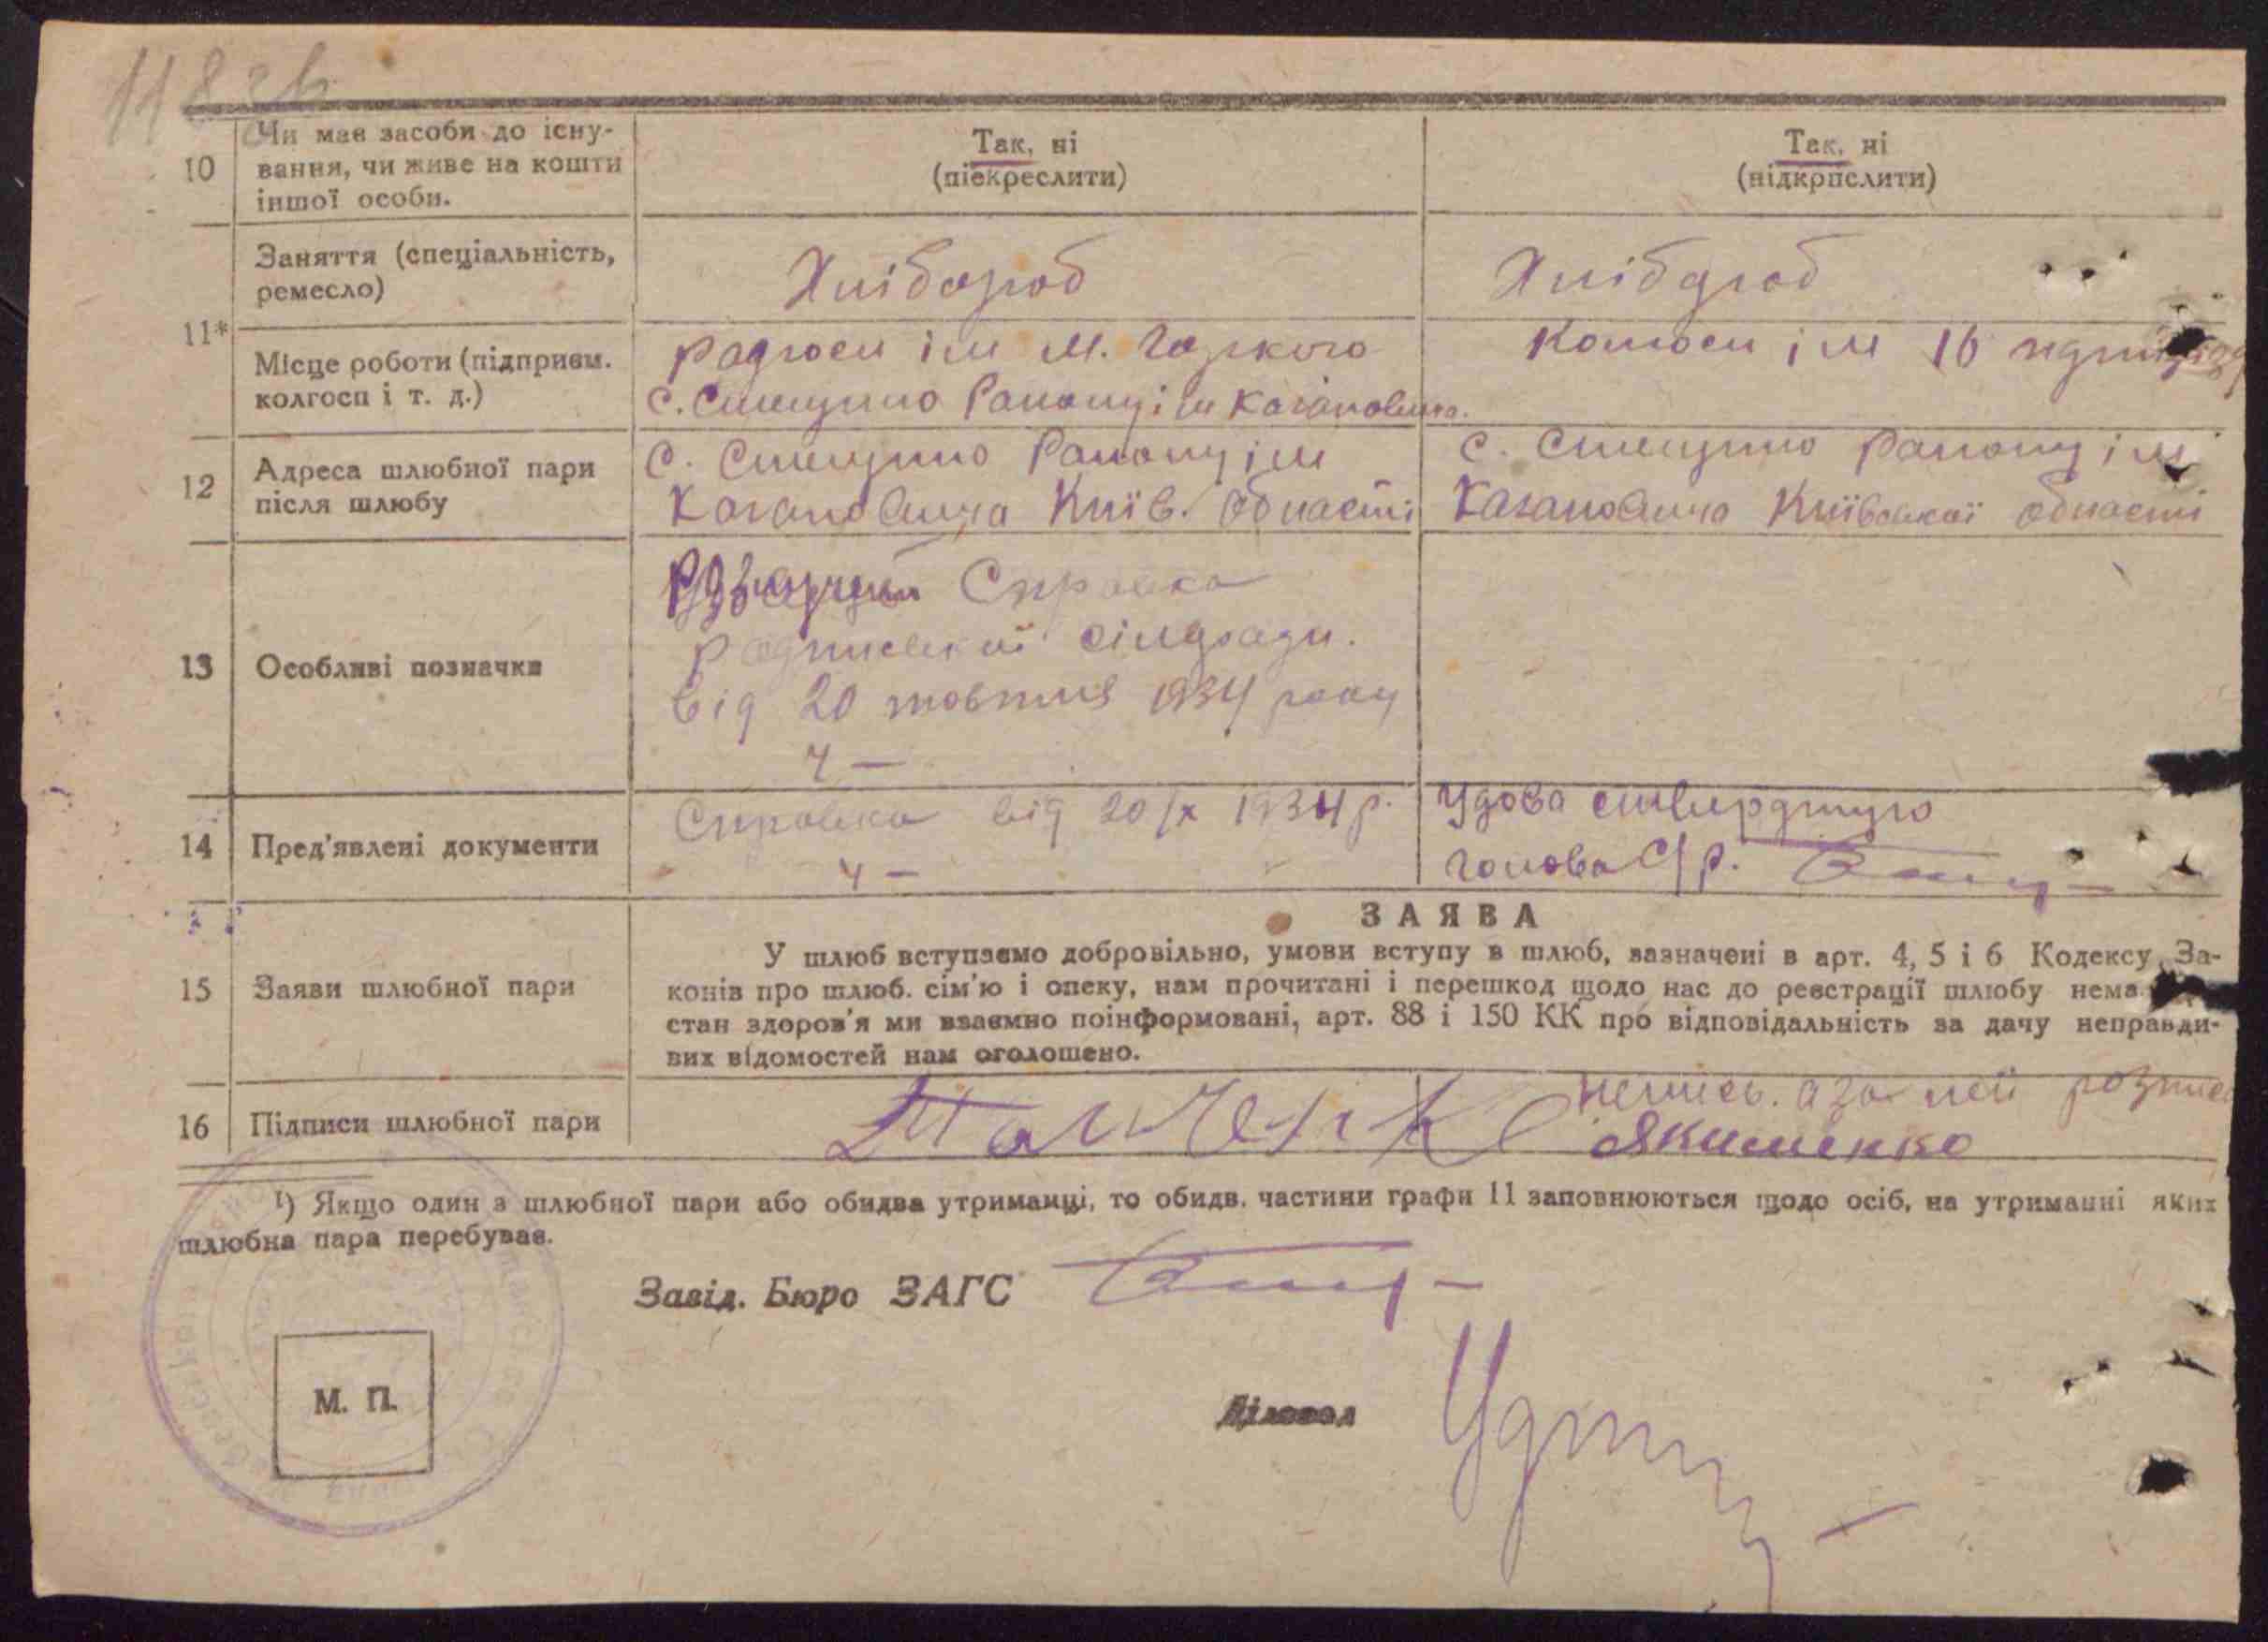 118 зв
10
Чи має засоби до існу-
вання, чи живе на кошти
іншої особи.
Так, ні
(піекреслити)
Так, ні
(нідкрпслити)
11*
Заняття (спеціальність,
ремесло)
Хлібороб
Хлібороб
Місце роботи (підприєм.
колгосп і т. д.)
радгосп ім М. Горкого
с. Стещино Району ім Кагановича.
Колгосп ім 16
12
Адреса шлюбної пари
після шлюбу
с. Стещино Району ім
Кагановича Київ. області
с. Стещино Району ім
Кагановича Київської області
13
Особливі позначки
Справка
сілдради.
від 20 жовтня 1934 року
ч —
14
Пред'явлені документи
Справка від 20/х 1934 р.
ч —
Удова стверджую
голова С/р.
15
Заяви шлюбної пари
ЗАЯВА
У шлюб вступаємо добровільно, умови вступу в шлюб, зазначені в арт. 4, 5 і 6 Кодексу За-
конів про шлюб. сім'ю і опеку, нам прочитані і перешкод щодо нас до реєстрації шлюбу нема
стан здоров'я ми взаємно поінформовані, арт. 88 і 150 КК про відповідальність за дачу неправди-
вих відомостей нам оголошено.
16
Підписи шлюбної пари
неписъ. а за ней
Якименко
¹) Якщо один з шлюбної пари або обидва утриманці, то обидв. частини графи 11 заповнюються щодо осіб, на утриманні яких
шлюбна пара перебуває.
Завід. Бюро ЗАГС
М. П.
Діловод